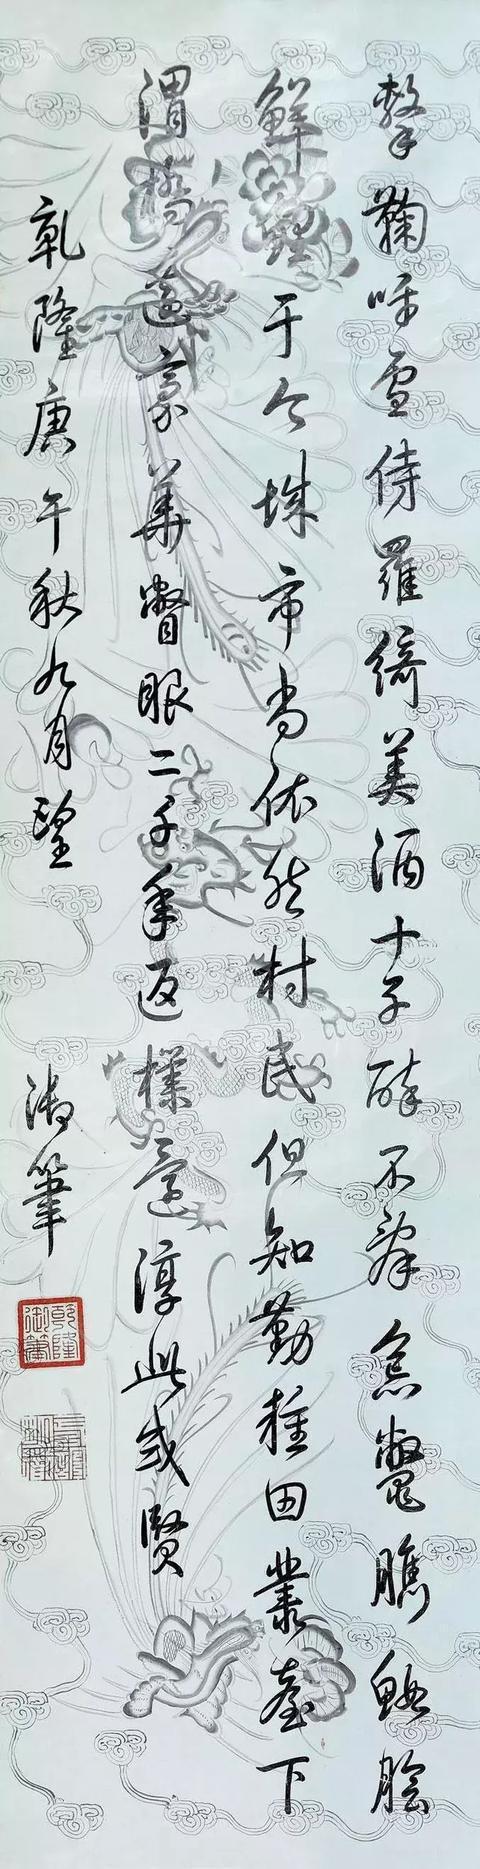 擊鞠呼盧侍羅綺美酒十千醉不辭炰鱉臇鰕膾
鮮鯉于今城市尚依然村民但知勤種田叢臺下
渭橋邊豪華瞥眼二千年返樸還淳此或賢
乾隆庚午秋九月望 御筆
乾隆御筆